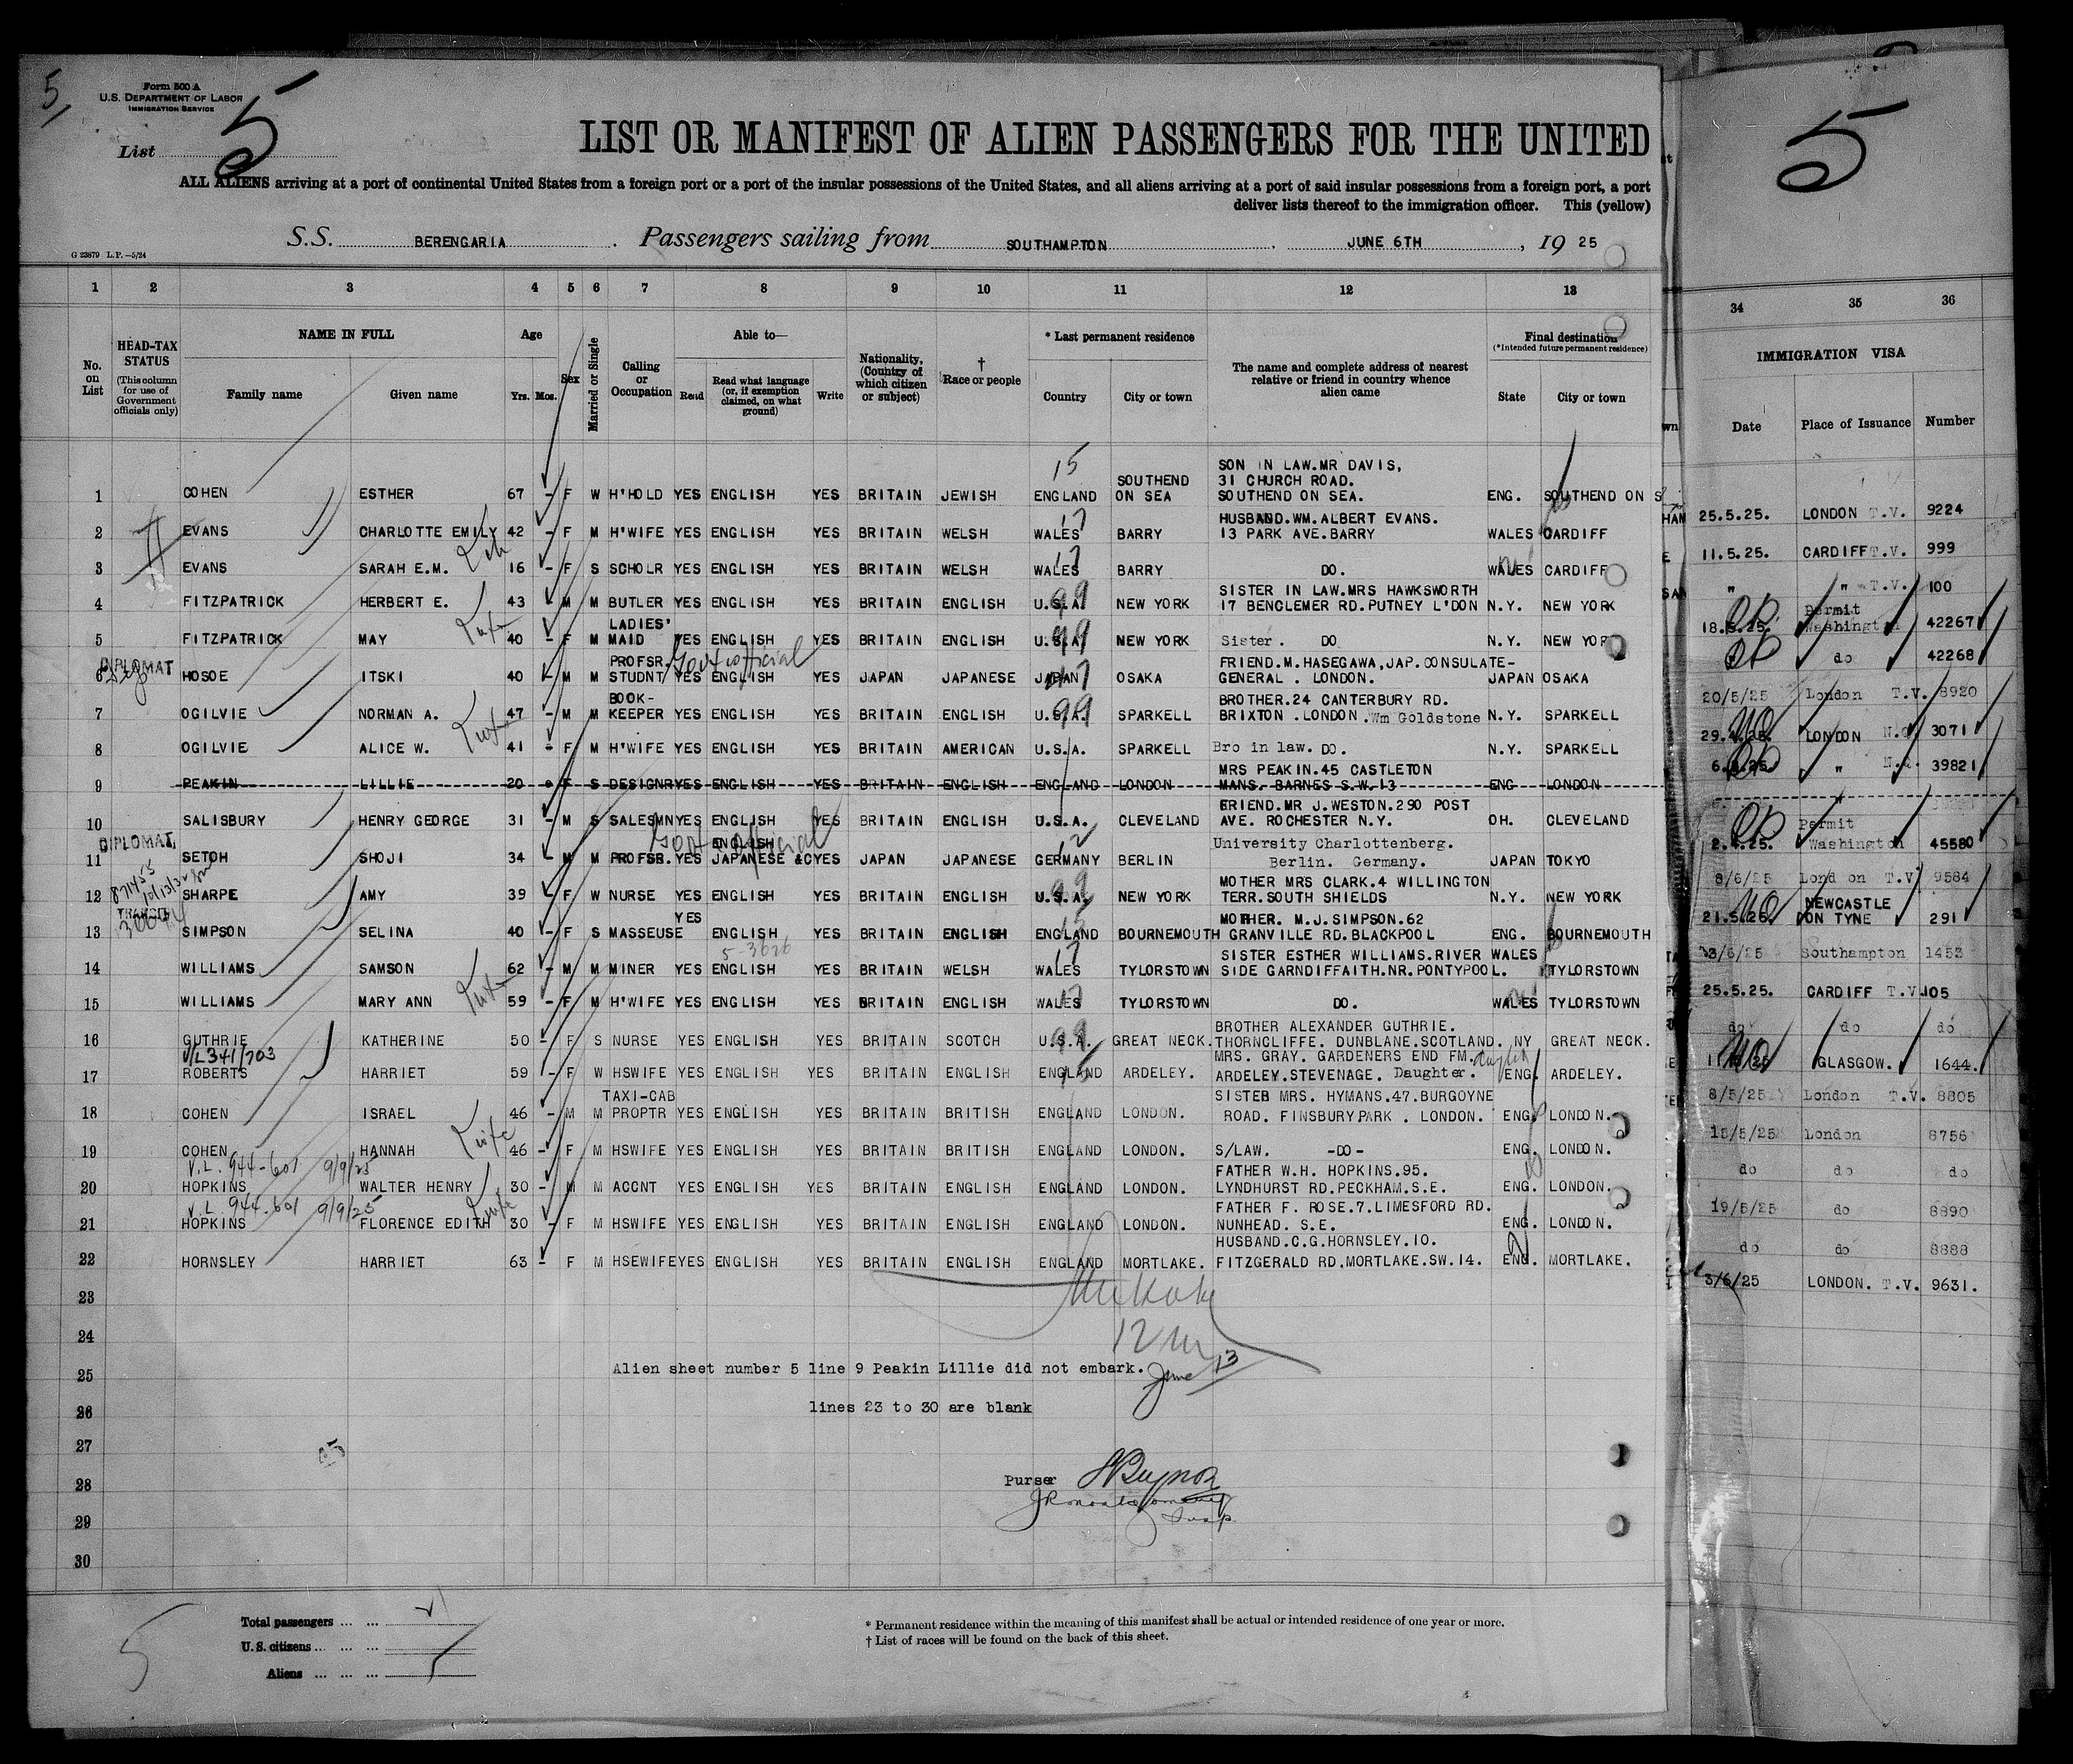 5
Form 500 A
U.S. DEPARTMENT OF LABOR
IMMIGRATION SERVICE
List 5
5
LIST OR MANIFEST OF ALIEN PASSENGERS FOR THE UNITED
ALL ALIENS arriving at a port of continental United States from a foreign port or a port of the insular possessions of the United States, and all aliens arriving at a port of said insular possessions from a foreign port, a port
deliver lists thereof to the immigration officer. This (yellow)
S.S. BERENGARIA. Passengers sailing from SOUTHAMPTON. JUNE 6TH, 19 25
G 23879 L.P.—5/24
1 2 3 4 5 6 7 8 9 10 11 12 13 34 35 36
No. on List
HEAD-TAX STATUS
(This column for use of Government officials only)
NAME IN FULL
Family name Given name
Age
Yrs. Mos.
Sex
Married or Single
Calling or Occupation
Able to—
Read
Read what language (or, if exemption claimed, on what ground)
Write
Nationality, (Country of which citizen or subject)
† Race or people
* Last permanent residence
Country City or town
The name and complete address of nearest relative or friend in country whence alien came
Final destination
(*Intended future permanent residence)
State City or town
IMMIGRATION VISA
Date Place of Issuance Number
15
SON IN LAW.MR DAVIS,
SOUTHEND 31 CHURCH ROAD.
1 COHEN ESTHER 67 - F W H'HOLD YES ENGLISH YES BRITAIN JEWISH ENGLAND ON SEA SOUTHEND ON SEA. ENG. SOUTHEND ON S 25.5.25. LONDON T.V. 9224
17 HUSBAND.WM.ALBERT EVANS.
2 EVANS CHARLOTTE EMILY 42 - F M H'WIFE YES ENGLISH YES BRITAIN WELSH WALES BARRY 13 PARK AVE.BARRY WALES CARDIFF 11.5.25. CARDIFF T.V. 999
17
3 EVANS SARAH E.M. 16 - F S SCHOLR YES ENGLISH YES BRITAIN WELSH WALES BARRY DO. WALES CARDIFF " " T.V. 100
SISTER IN LAW.MRS HAWKSWORTH Permit
4 FITZPATRICK HERBERT E. 43 - M M BUTLER YES ENGLISH YES BRITAIN ENGLISH U.S.A. 99 NEW YORK 17 BENGLEMER RD.PUTNEY L'DON N.Y. NEW YORK 18.5.25. Washington 42267
LADIES'
5 FITZPATRICK MAY 40 - F M MAID YES ENGLISH YES BRITAIN ENGLISH U.S.A. 99 NEW YORK Sister. DO N.Y. NEW YORK do 42268
DIPLOMAT PROFSR. Govt official FRIEND.M.HASEGAWA,JAP.CONSULATE-
6 HOSOE ITSKI 40 - M M STUDNT YES ENGLISH YES JAPAN JAPANESE JAPAN OSAKA GENERAL . LONDON. JAPAN OSAKA 20/5/25 London T.V. 8920
BOOK- BROTHER.24 CANTERBURY RD.
7 OGILVIE NORMAN A. 47 - M M KEEPER YES ENGLISH YES BRITAIN ENGLISH U.S.A. 99 SPARKELL BRIXTON .LONDON .Wm Goldstone N.Y. SPARKELL LONDON 3071
8 OGILVIE ALICE W. 41 - F M H'WIFE YES ENGLISH YES BRITAIN AMERICAN U.S.A. SPARKELL Bro in law. DO. N.Y. SPARKELL " 39821
MRS PEAKIN.45 CASTLETON
9 PEAKIN LILLIE 20 - F S DESIGNR YES ENGLISH YES BRITAIN ENGLISH ENGLAND LONDON MANS. BARNES S.W.13 ENG LONDON
FRIEND.MR J.WESTON.290 POST Permit
10 SALISBURY HENRY GEORGE 31 - M S SALESMN YES ENGLISH YES BRITAIN ENGLISH U.S.A. CLEVELAND AVE. ROCHESTER N.Y. OH. CLEVELAND Washington 45580
DIPLOMAT Govt official ENGLISH University Charlottenberg.
11 SETOH SHOJI 34 - M M PROFSR. YES JAPANESE &C YES JAPAN JAPANESE GERMANY BERLIN Berlin. Germany. JAPAN TOKYO 8/6/25 London T.V. 9584
MOTHER MRS CLARK.4 WILLINGTON NEWCASTLE
12 SHARPE AMY 39 - F W NURSE YES ENGLISH YES BRITAIN ENGLISH U.S.A. 99 NEW YORK TERR.SOUTH SHIELDS N.Y. NEW YORK 21.5.25. ON TYNE 291
TRANSIT YES MOTHER. M.J.SIMPSON.62
13 SIMPSON SELINA 40 - F S MASSEUSE ENGLISH YES BRITAIN ENGLISH ENGLAND BOURNEMOUTH GRANVILLE RD.BLACKPOOL ENG. BOURNEMOUTH 3/6/25 Southampton 1453
5-3626 17 SISTER ESTHER WILLIAMS.RIVER WALES
14 WILLIAMS SAMSON 62 - M M MINER YES ENGLISH YES BRITAIN WELSH WALES TYLORSTOWN SIDE GARNDIFFAITH.NR.PONTYPOOL. TYLORSTOWN 25.5.25. CARDIFF T.V. 105
15 WILLIAMS MARY ANN 59 - F M H'WIFE YES ENGLISH YES BRITAIN ENGLISH WALES TYLORSTOWN DO. WALES TYLORSTOWN do do do
BROTHER ALEXANDER GUTHRIE.
16 GUTHRIE KATHERINE 50 - F S NURSE YES ENGLISH YES BRITAIN SCOTCH U.S.A. 99 GREAT NECK. THORNCLIFFE. DUNBLANE.SCOTLAND. NY GREAT NECK. GLASGOW. 1644.
V/L 341/703 MRS. GRAY. GARDENERS END FM.
17 ROBERTS HARRIET 59 - F W HSWIFE YES ENGLISH YES BRITAIN ENGLISH ENGLAND ARDELEY. ARDELEY.STEVENAGE. Daughter. ENG. ARDELEY. 8/5/25 London T.V. 8805
TAXI-CAB SISTER MRS. HYMANS.47.BURGOYNE
18 COHEN ISRAEL 46 - M M PROPTR YES ENGLISH YES BRITAIN BRITISH ENGLAND LONDON. ROAD. FINSBURY PARK . LONDON. ENG. LONDON. 15/5/25 London 8756
19 COHEN HANNAH wife 46 - F M HSWIFE YES ENGLISH YES BRITAIN BRITISH ENGLAND LONDON. S/LAW. -DO- ENG. LONDON. do do do
V.L. 944-601 9/9/25 FATHER W.H. HOPKINS.95.
20 HOPKINS WALTER HENRY 30 - M M ACCNT YES ENGLISH YES BRITAIN ENGLISH ENGLAND LONDON. LYNDHURST RD.PECKHAM.S.E. ENG. LONDON. 19/5/25 do 8890
V.L. 944-601 9/9/25 FATHER F. ROSE.7.LIMESFORD RD.
21 HOPKINS FLORENCE EDITH 30 - F M HSWIFE YES ENGLISH YES BRITAIN ENGLISH ENGLAND LONDON. NUNHEAD. S.E. ENG. LONDON. do do 8888
HUSBAND.C.G.HORNSLEY.10.
22 HORNSLEY HARRIET 63 - F M HSEWIFE YES ENGLISH YES BRITAIN ENGLISH ENGLAND MORTLAKE. FITZGERALD RD.MORTLAKE.SW.14. ENG. MORTLAKE. 3/6/25 LONDON. T.V. 9631.
23
24
12
25 Alien sheet number 5 line 9 Peakin Lillie did not embark. June 13
26 lines 23 to 30 are blank
27
28 Purser
29 Insp.
30
Total passengers ... ...
U. S. citizens ... ...
Aliens ... ... ...
5
* Permanent residence within the meaning of this manifest shall be actual or intended residence of one year or more.
† List of races will be found on the back of this sheet.